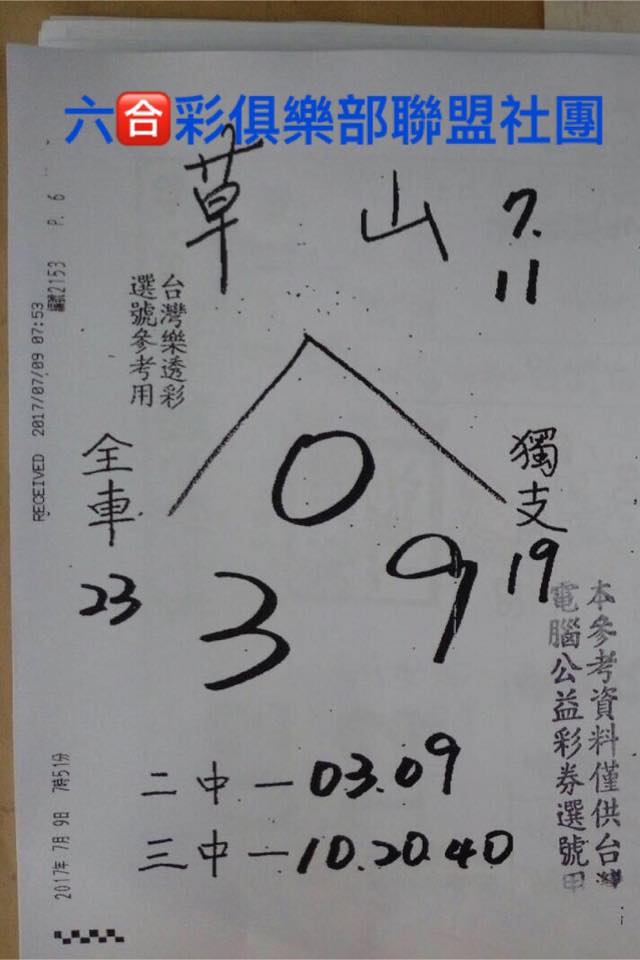 六合彩俱樂部聯盟社團
草山 7.
11
台灣樂透彩
選號參考用
RECEIVED 2017/07/09 07:53
2153 P. 6
全車
23
0
3 9
獨支
19
本參考資料僅供台灣
電腦公益彩券選號用
二中－03.09
三中－10.20.40
2017年 7月 9日 7時51分